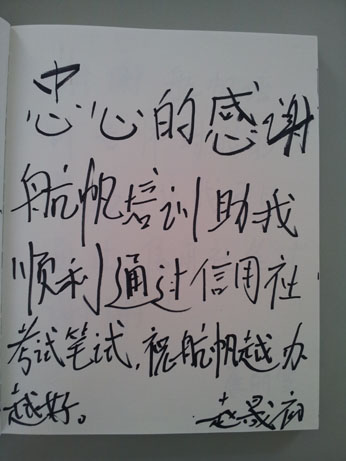 忠心的感谢
航帆培训助我
顺利通过信用社
考试笔试,祝航帆越办
越好。 赵晟